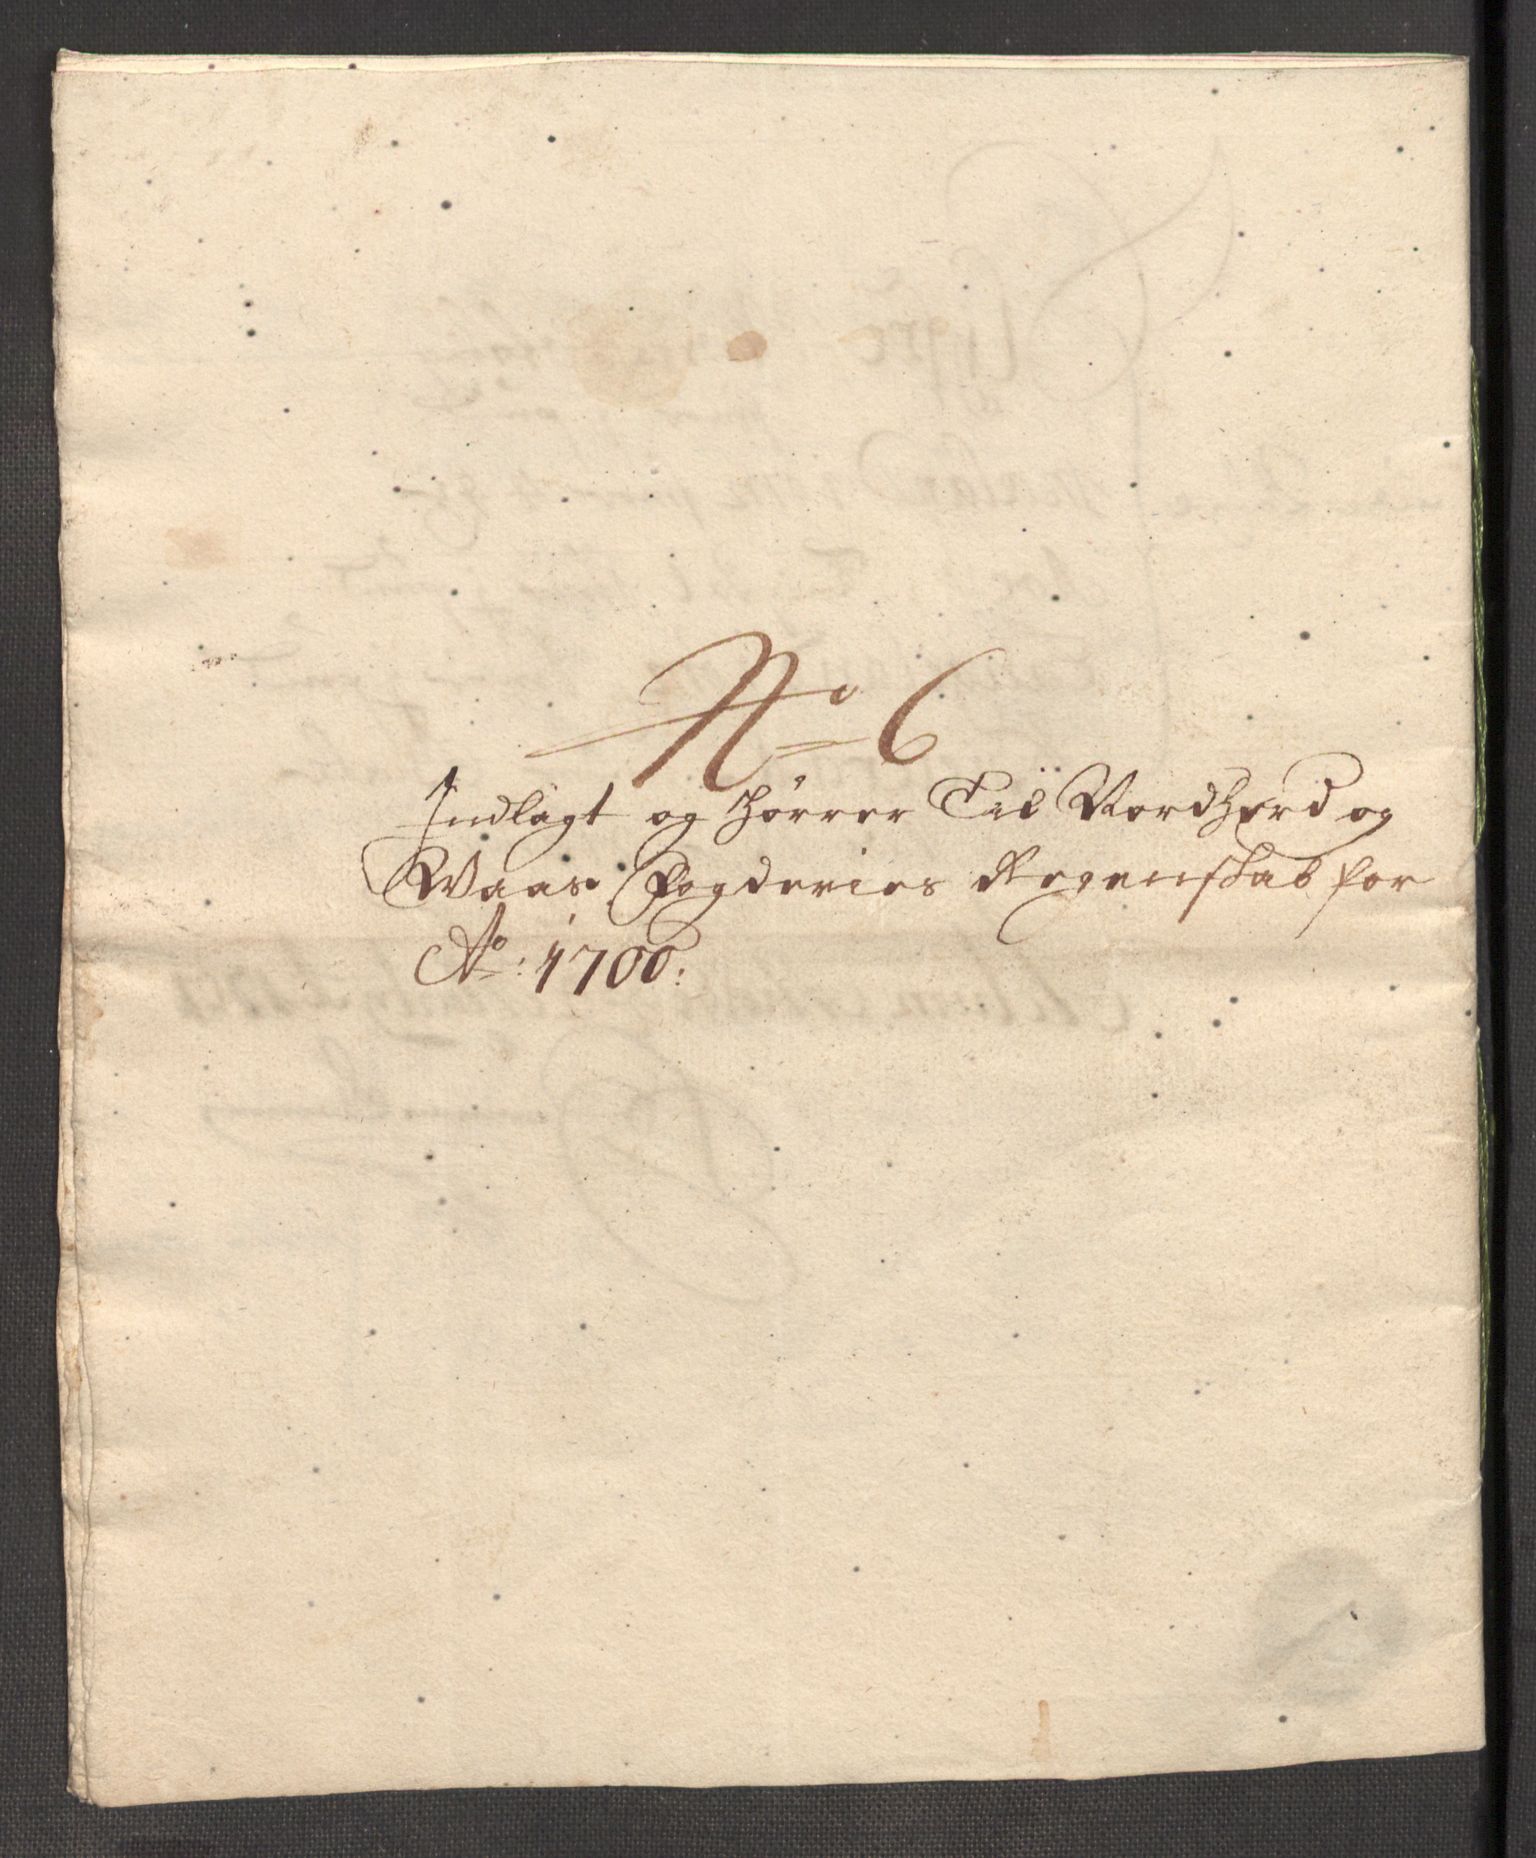 No 6
Indlagt og hörrer Til Nordhord og
Waas Fogderies Regenskab for
Ao: 1700: